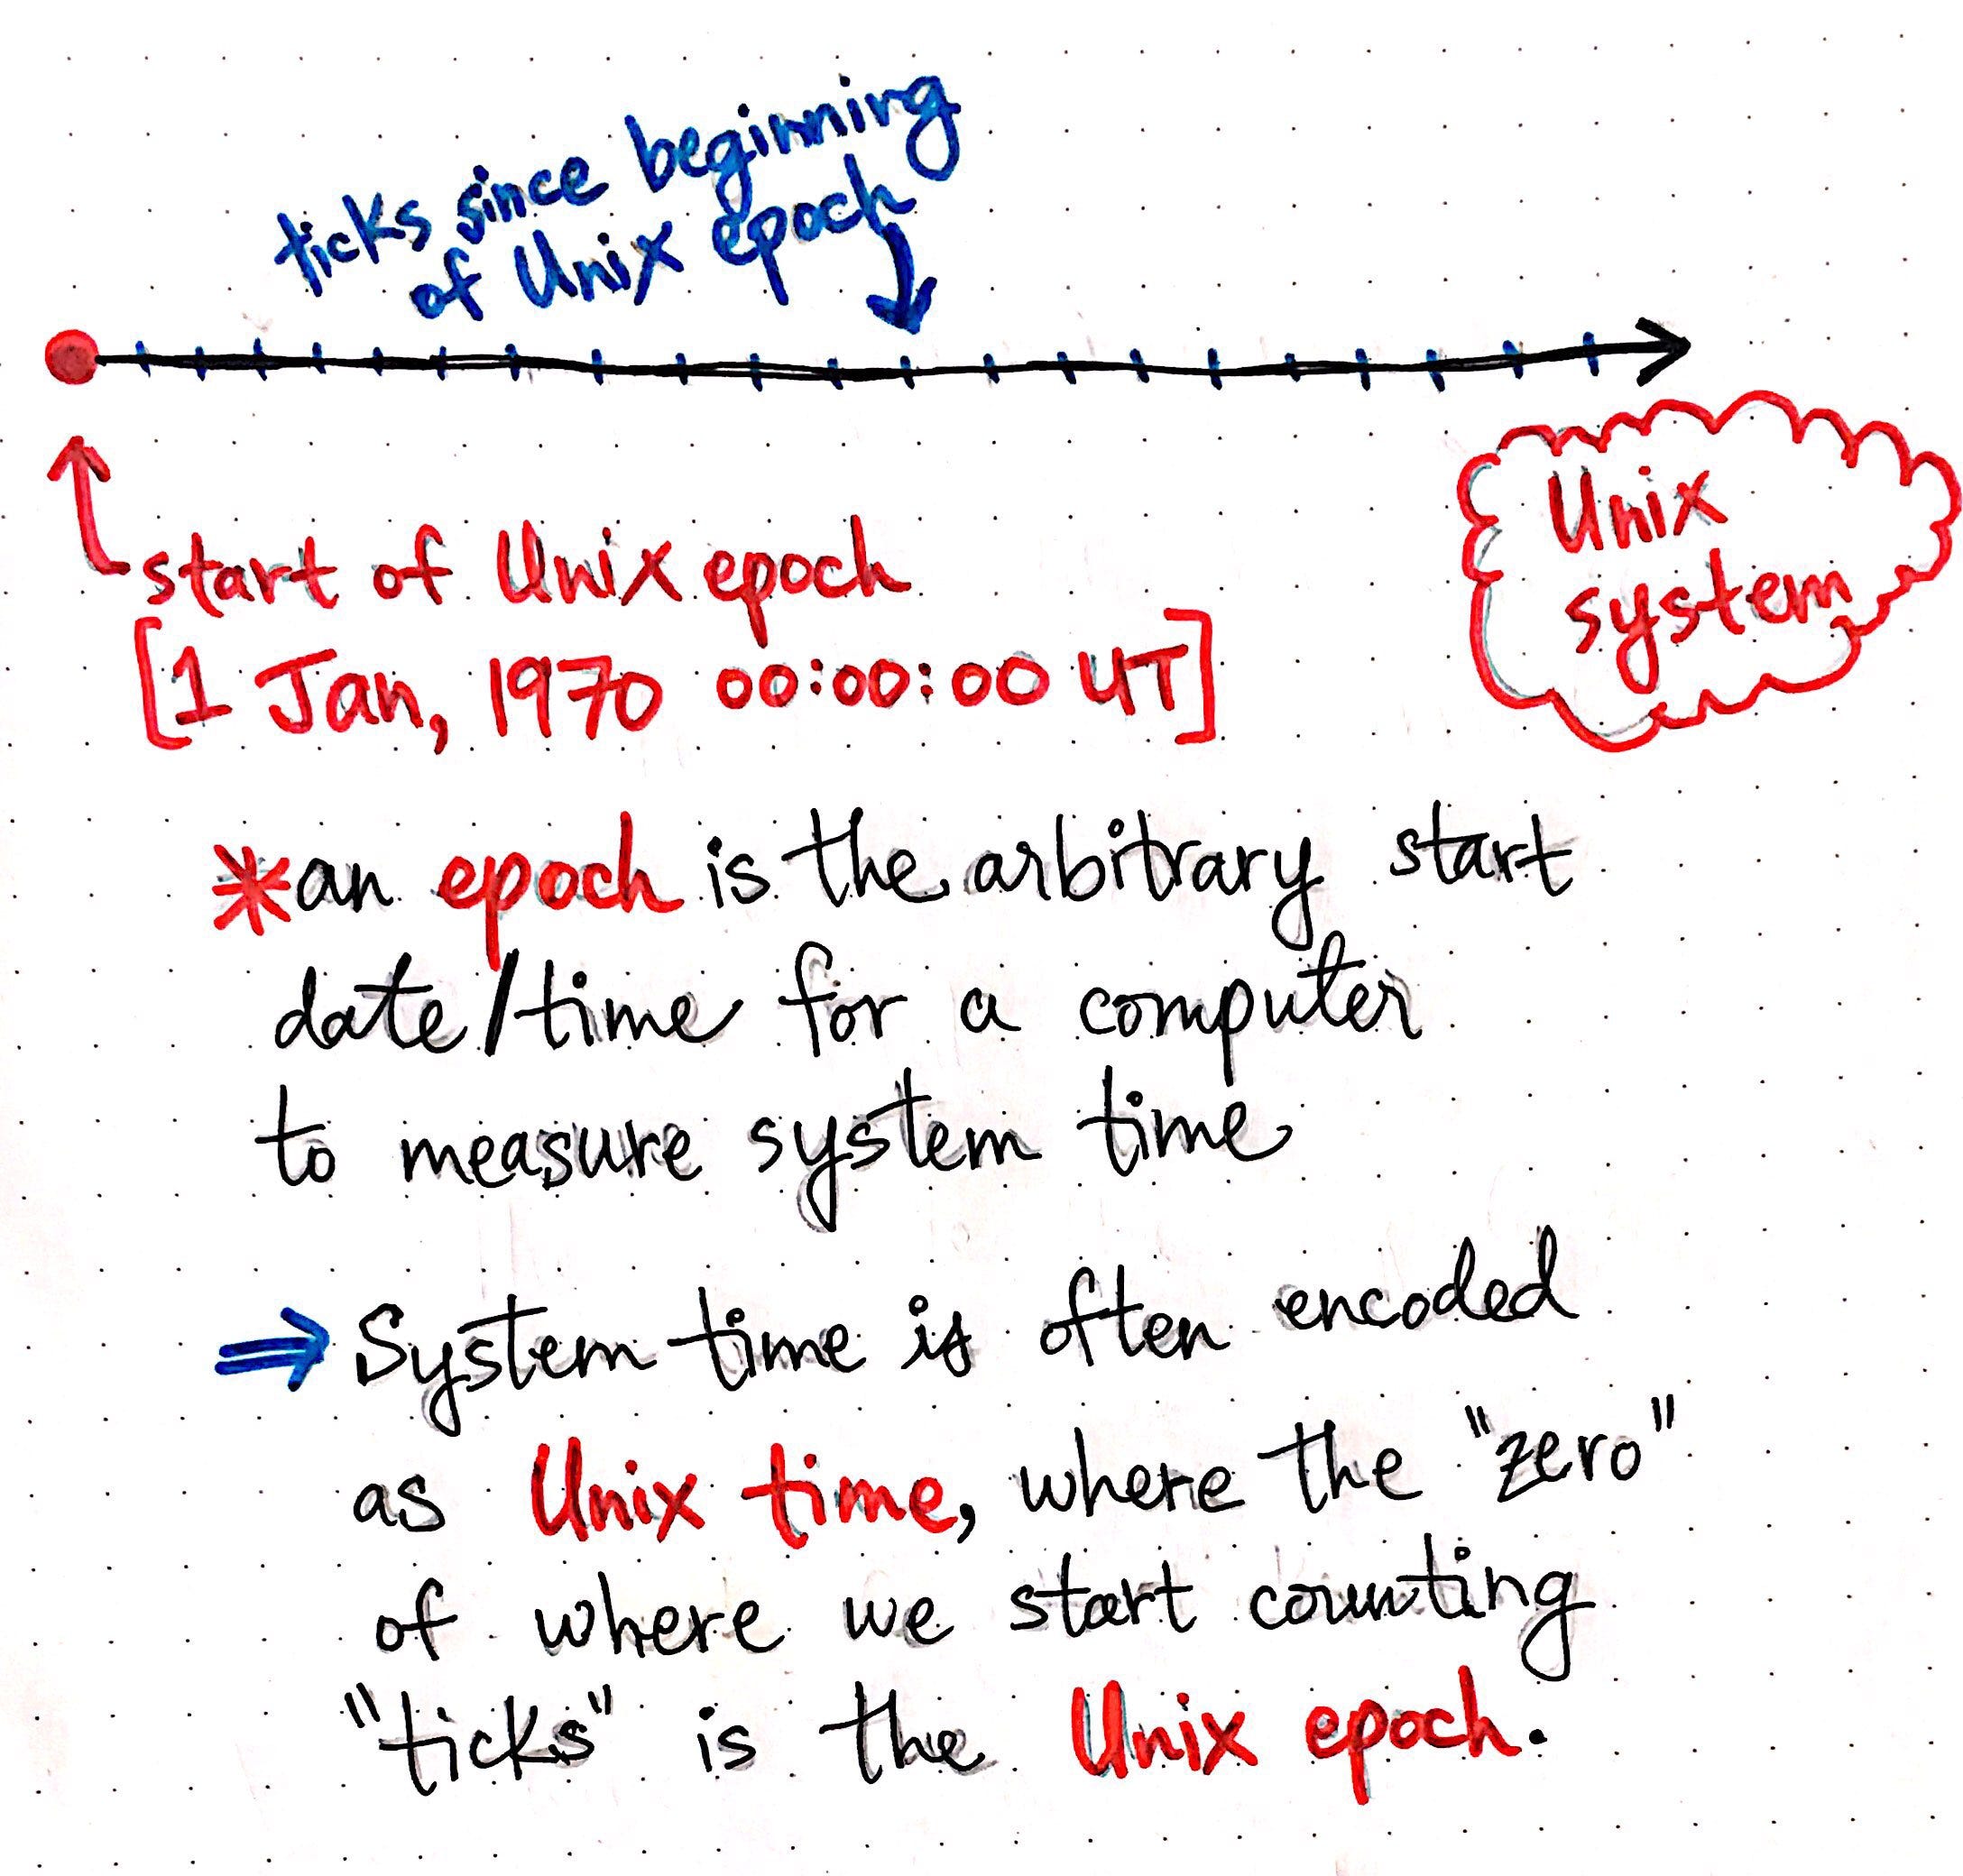 ticks since beginning
of Unix epoch
start of Unix epoch
[1 Jan, 1970 00:00:00 UT]
Unix
system
*an epoch is the arbitrary start
date/time for a computer
to measure system time
⇒ System time is often encoded
as Unix time, where the "zero"
of where we start counting
"ticks" is the Unix epoch.